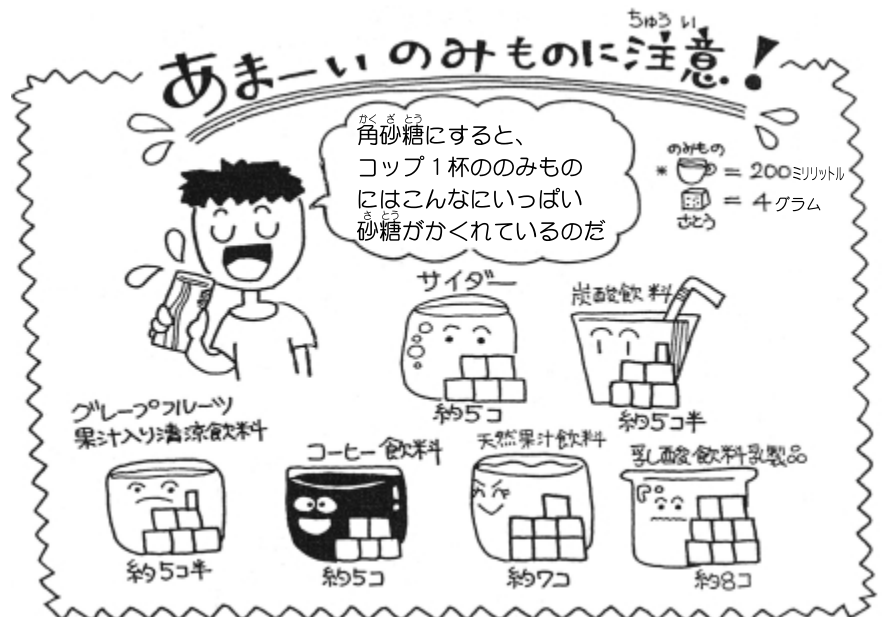 あまーいのみものに注意!
ちゅうい
角砂糖にすると、
かくざとう
コップ1杯ののみもの
にはこんなにいっぱい
砂糖がかくれているのだ
さとう
のみもの
* = 200ミリリットル
= 4グラム
さとう
サイダー
約5コ
炭酸飲料
約5コ半
グレープフルーツ
果汁入り清涼飲料
約5コ半
コーヒー飲料
約5コ
天然果汁飲料
約7コ
乳酸飲料乳製品
約8コ